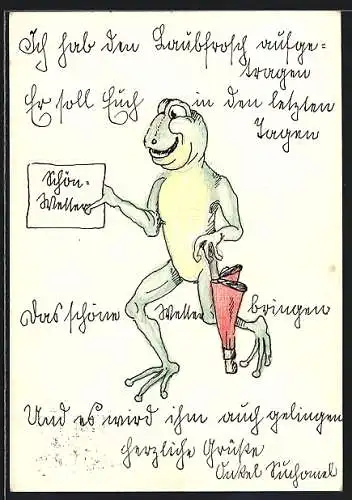 Ich hab den Laubfrosch aufge-
tragen
Er soll Euch in den letzten
Tagen
Schön-
Wetter
Das schöne Wetter bringen
Und es wird ihm auch gelingen
herzliche Grüße
Onkel Suchomel